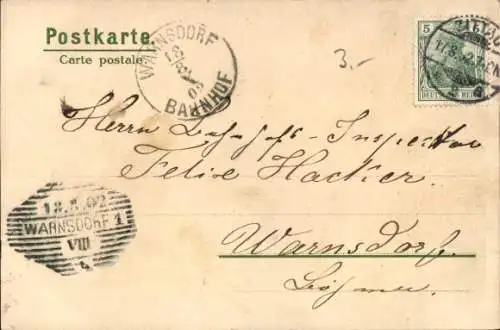 Postkarte.
Carte postale.
WARNSDORF
18
8
02
BAHNHOF
3.-
5
DEUTSCHES REICH
ZITTAU
17/8
Herrn Bahnhofs-Inspektor
Felix Hacker.
18.8.02
WARNSDORF 1
VIII
Warnsdorf.
Böhmen.